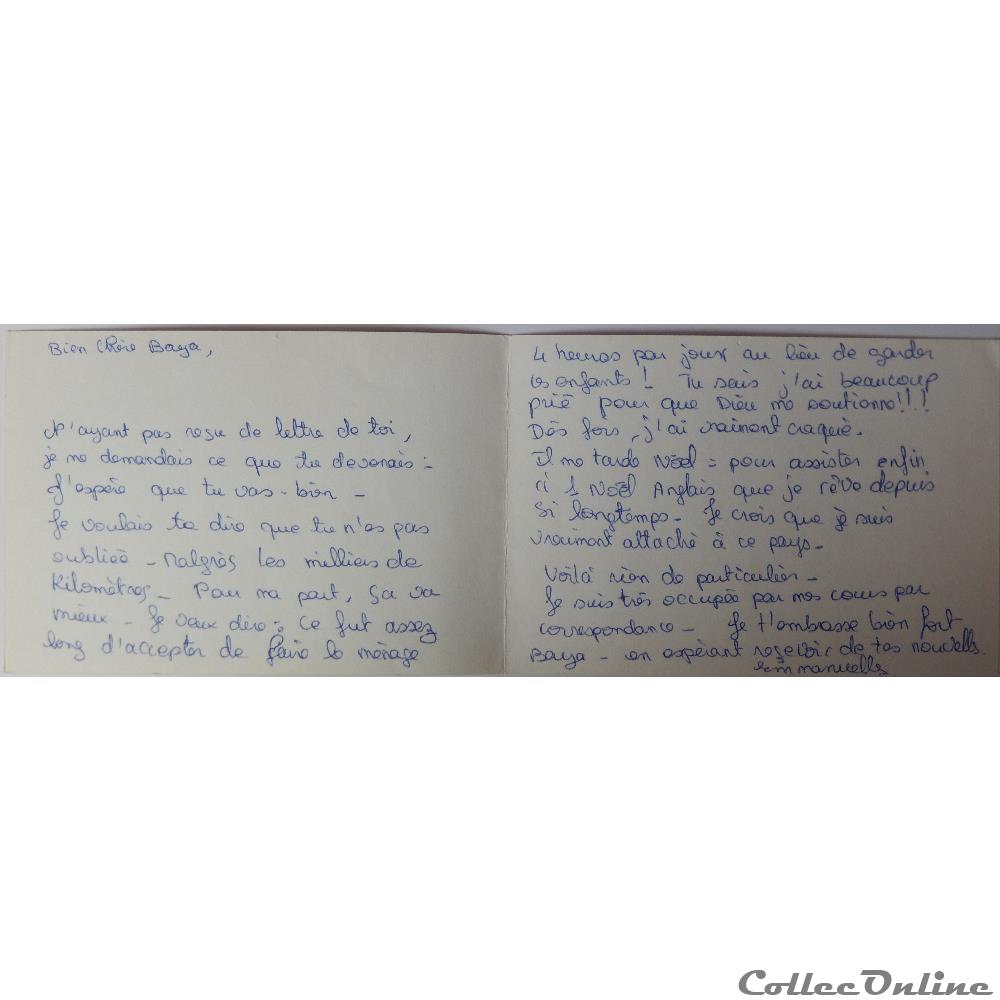 Bien Chère Baya,
N'ayant pas reçu de lettre de toi,
je me demandais ce que tu devenais :
J'espère que tu vas bien -
Je voulais te dire que tu n'es pas
oubliée - Malgrès les milliers de
Kilomètres - Pour ma part, ça va
mieux - Je veux dire : ce fut assez
long d'accepter de faire le ménage
4 heures par jour au lieu de garder
les enfants ! Tu sais j'ai beaucoup
prié pour que Dieu me soutienne!!!
Dès fois, j'ai vraiment craquée.
Il me tarde Noël = pour assister enfin
à 1 Noël Anglais que je rêve depuis
si longtemps - Je crois que je suis
vraiment attaché à ce pays -
Voilà rien de particulier -
Je suis très occupée par mes cours par
correspondance - Je t'embrasse bien fort
Baya - en espérant recevoir de tes nouvelles.
Emmanuelle
CollecOnline